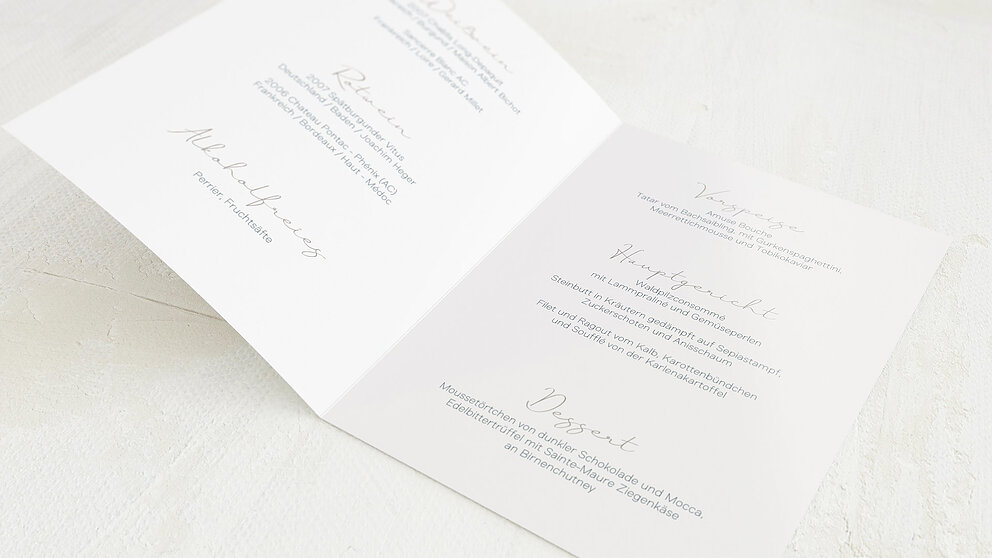 Weißwein
2007 Chablis Long-Depaquit
/ Burgund / Maison Albert Bichot
Sancerre Blanc AC
Frankreich / Loire / Gerard Millet
Rotwein
2007 Spätburgunder Vitus
Deutschland / Baden / Joachim Heger
2006 Chateau Pontac - Phénix (AC)
Frankreich / Bordeaux / Haut - Médoc
Alkoholfreies
Perrier, Fruchtsäfte
Vorspeise
Amuse Bouche
Tatar vom Bachsaibling, mit Gurkenspaghettini,
Meerrettichmousse und Tobikokaviar
Hauptgericht
Waldpilzconsommé
mit Lammpraliné und Gemüseperlen
Steinbutt in Kräutern gedämpft auf Sepiastampf,
Zuckerschoten und Anisschaum
Filet und Ragout vom Kalb, Karottenbündchen
und Soufflé von der Karlenakartoffel
Dessert
Moussetörtchen von dunkler Schokolade und Mocca,
Edelbittertrüffel mit Sainte-Maure Ziegenkäse
an Birnenchutney